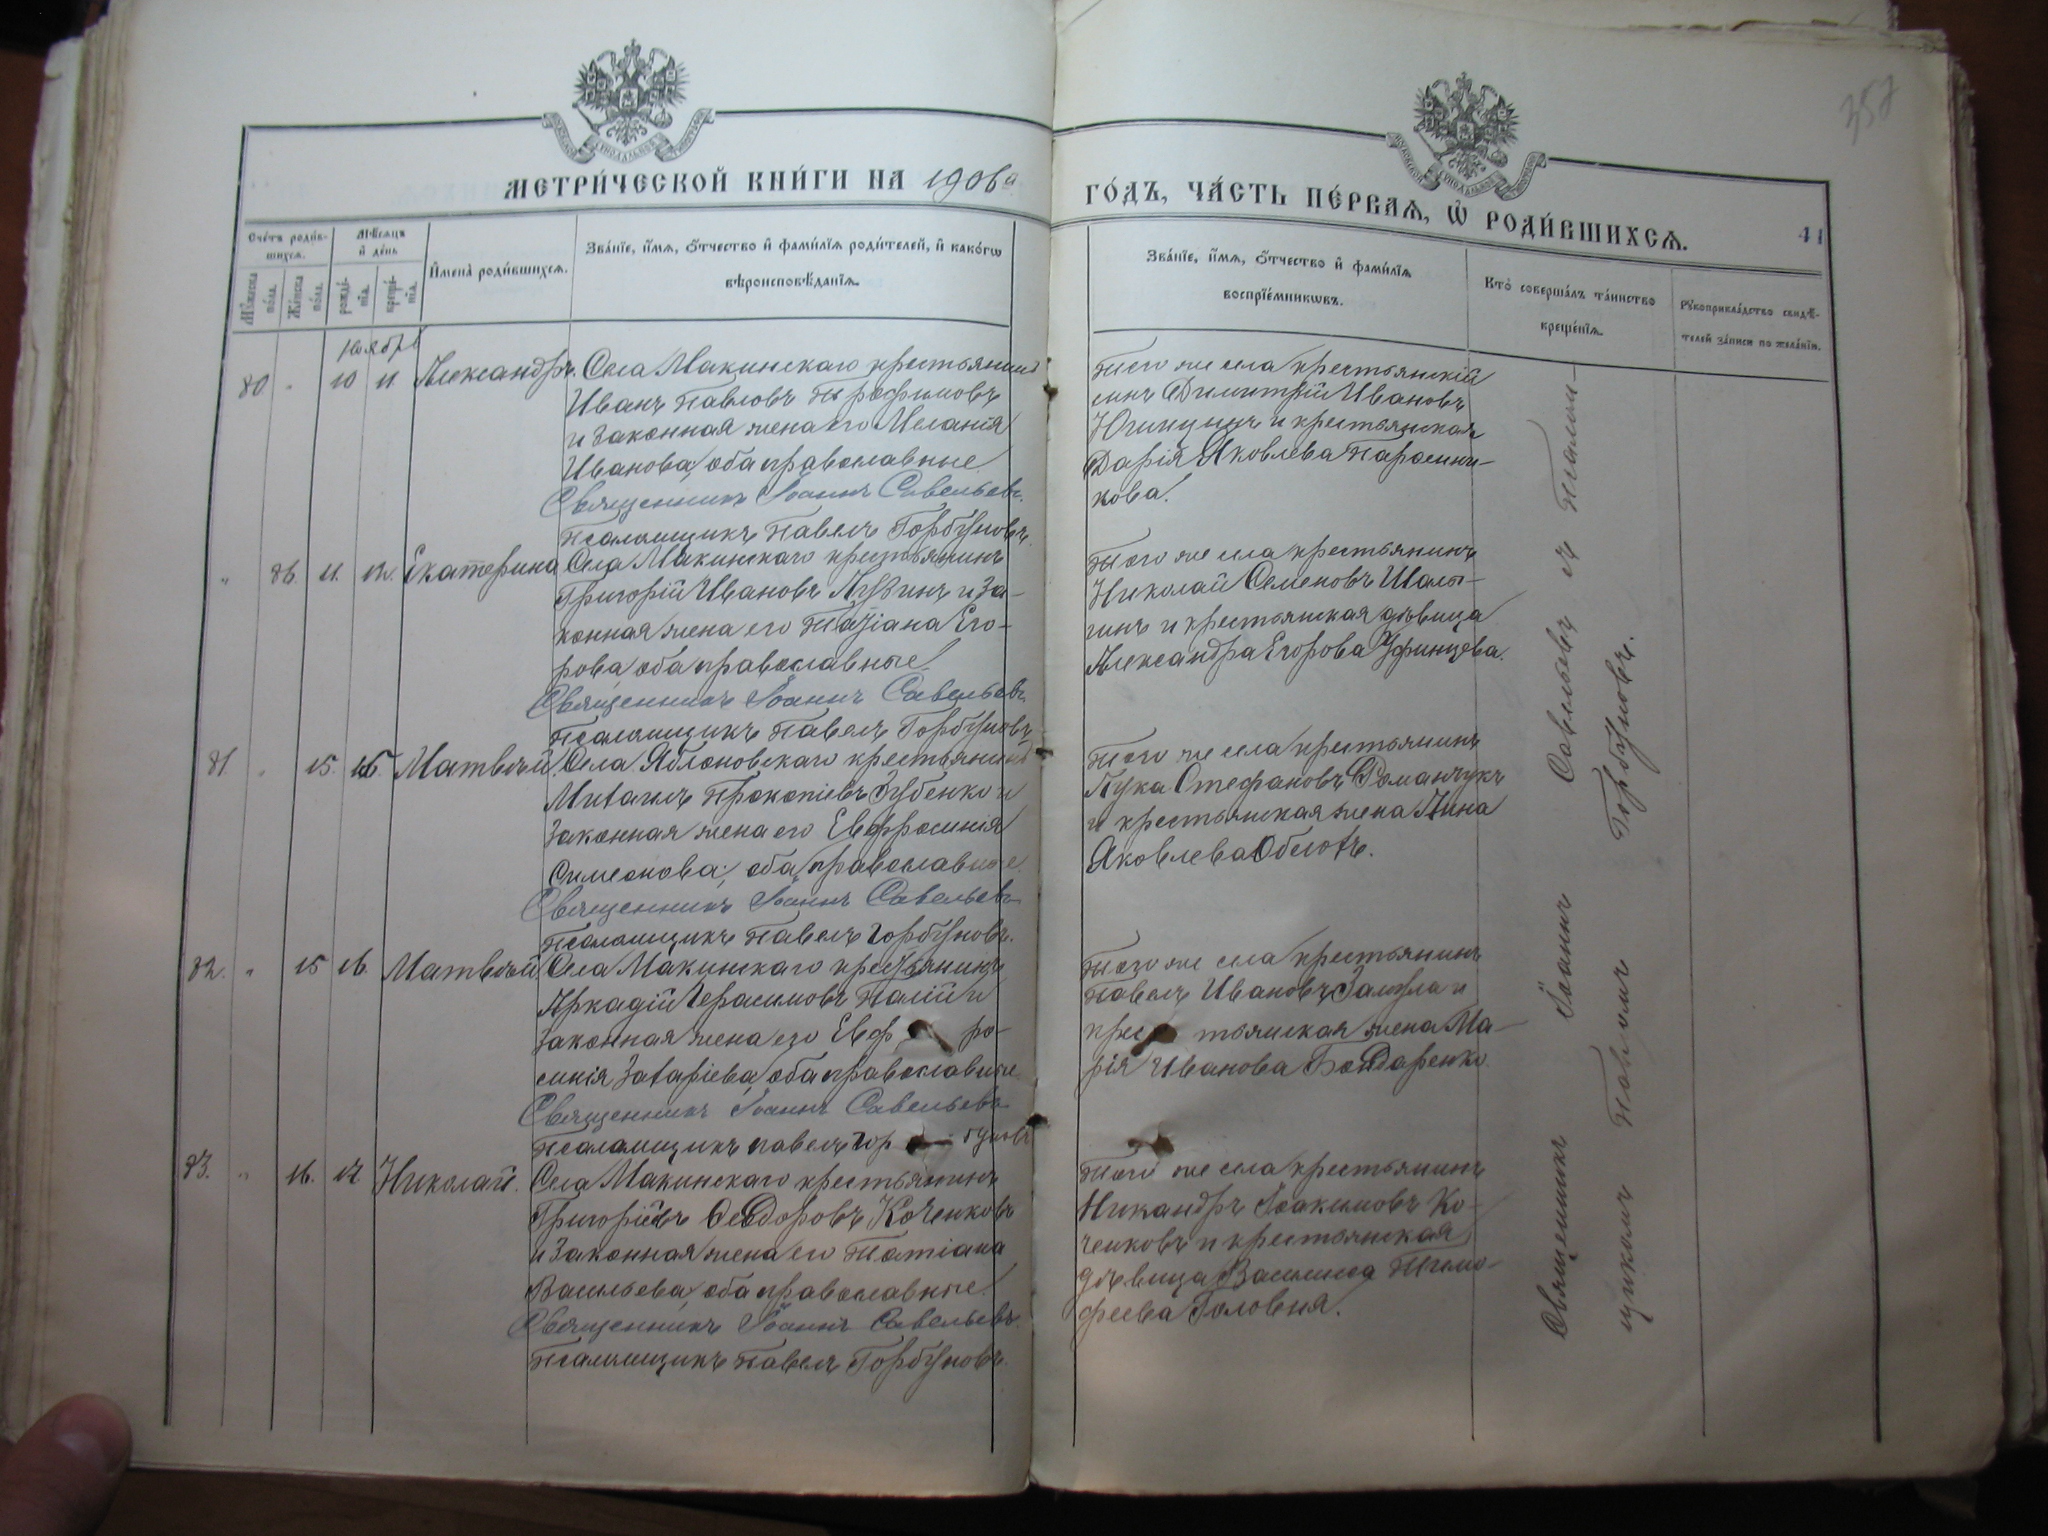 МЕТРИ́ЧЕСКОЙ КНИ́ГИ НА 1906й
ГО́ДЪ, ЧА́СТЬ ПЕ́РВАѦ, Ѽ РОДИ́ВШИХСѦ.
41
Сче́тъ роди́в-
шихсѧ.
Мѣ́сѧцъ
и҆ де́нь
Мꙋ́жеска
по́ла.
Же́нска
по́ла.
рожде́-
нїѧ.
креще́-
нїѧ.
И҆мена̀ роди́вшихсѧ.
Зва́нїе, и҆́мѧ, ѻ҆́тчество и҆ фами́лїѧ роди́телей, и҆ како́гѡ
вѣроисповѣ́данїѧ.
Зва́нїе, и҆́мѧ, ѻ҆́тчество и҆ фами́лїѧ
воспрїе́мникѡвъ.
Кто̀ соверша́лъ та́инство
креще́нїѧ.
Рꙋкоприкла́дство свидѣ́-
телей за́писи по жела́нїю.
Ноября
80 „ 10 11. Александръ. Села Макинскаго крестьянинъ
Иванъ Павловъ Трофимовъ
и законная жена его Меланія
Иванова, оба православные.
Священникъ Іоаннъ Савельевъ.
Псаломщикъ Павелъ Горбуновъ.
Того же села крестьянскій
сынъ Димитрій Ивановъ
и крестьянская
Дарія Яковлева
кова.
„ 86. 11. 12. Екатерина Села Макинскаго крестьянинъ
Григорій Ивановъ Лузинъ и за-
конная жена его Татіана Его-
рова, оба православные.
Священникъ Іоаннъ Савельевъ
Псаломщикъ Павелъ Горбуновъ
Того же села крестьянинъ
Николай Семеновъ Шалы-
гинъ и крестьянская дѣвица
Александра Егорова Уфинцева.
81. „ 15. 16. Матвѣй. Села Яблоновскаго крестьянинъ
Михаилъ Прокопіевъ Зубенко и
законная жена его Евфросинія
Симеонова, оба православные
Священникъ Іоаннъ Савельевъ
Псаломщикъ Павелъ Горбуновъ.
Того же села крестьянинъ
Лука Стефановъ Романчукъ
и крестьянская жена
Яковлева
82. „ 15 16. Матвѣй Села Макинскаго крестьянинъ
Аркадій Герасимовъ Палій и
законная жена его Евф ро-
синія Захаріева, оба православные
Священникъ Іоаннъ Савельевъ
Псаломщикъ Павелъ Гор буновъ
Того же села крестьянинъ
Павелъ Ивановъ и
крес тьянская жена Ма-
рія Иванова Бондаренко.
83. „ 16. 17 Николай. Села Макинскаго крестьянинъ
Григорій Ѳеодоровъ Коченковъ
и законная жена его Татіана
Васильева, оба православные.
Священникъ Іоаннъ Савельевъ.
Псаломщикъ Павелъ Горбуновъ.
Того же села крестьянинъ
Никандръ Іоакимовъ Ко-
ченковъ и крестьянская
дѣвица Василиса Тимо-
феева Головня.
Священникъ Іоаннъ Савельевъ съ Псалом-
щикомъ Павломъ Горбуновъ.